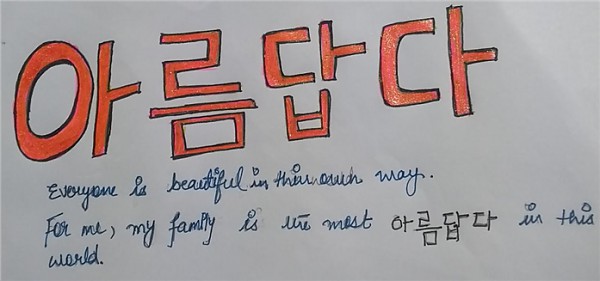 아름답다
Everyone is beautiful in their own way.
For me, my family is the most 아름답다 in this
world.